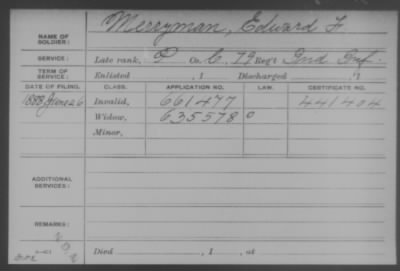 NAME OF SOLDIER: Merryman, Edward F
SERVICE: Late rank, P Co. C, 79 Reg't Ind Inf.
TERM OF SERVICE: Enlisted , 1 Discharged , 1
DATE OF FILING. CLASS. APPLICATION NO. LAW. CERTIFICATE NO.
1888 June 26 Invalid, 661477 441404
Widow, 635578
Minor,
ADDITIONAL SERVICES:
REMARKS:
Died , 1 , at